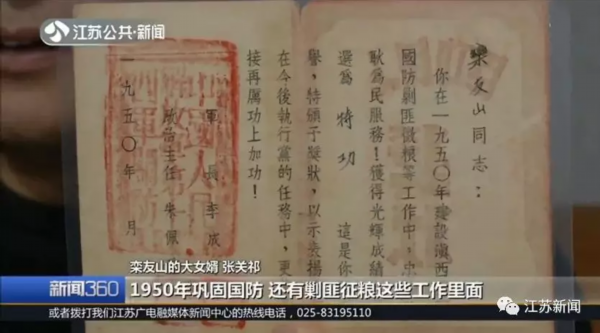 江苏公共·新闻
栾友山同志：
你在一九五〇年建設滇西
國防剿匪徵粮等工作中，忠
耿為民服務！獲得光輝成績
選為 特功 這是你
譽，特頒予獎狀，以示表揚
在今後執行黨的任務中，更
接再厲功上加功！
軍長李成
政治主任 朱佩
一九五〇年 月
栾友山的大女婿 张关祁
新闻360
1950年巩固国防 还有剿匪征粮这些工作里面
或者拨打我们江苏广电融媒体新闻中心的热线电话，025-83195110
江苏新闻